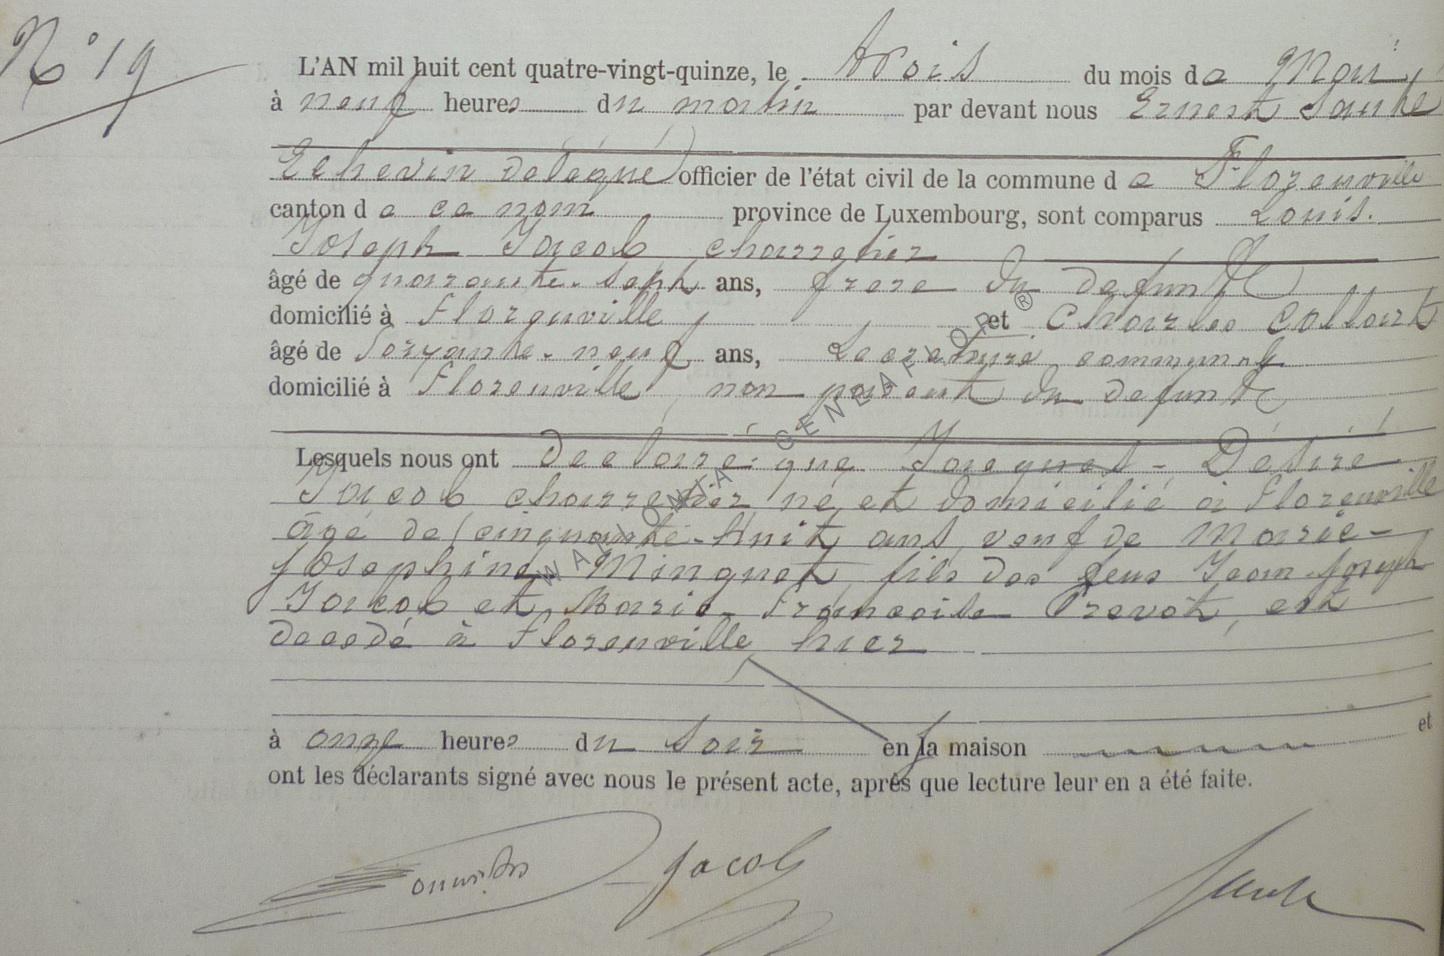 N° 19
L'AN mil huit cent quatre-vingt-quinze, le trois du mois de Mai
à neuf heures du matin par devant nous Ernest
Echevin délégué officier de l'état civil de la commune de Florenville
canton de ce nom province de Luxembourg, sont comparus Louis
Joseph Jacob charretier
âgé de quarante-sept ans, frère du défunt
domicilié à Florenville, et Charles Collart
âgé de soixante-neuf ans, Secrétaire communal
domicilié à Florenville, non parent du défunt
Lesquels nous ont déclaré que Jacques-Désiré
Jacob charretier né et domicilié à Florenville
âgé de cinquante-huit ans, veuf de Marie-
Joséphine Minguet, fils des feus Jean-Joseph
Jacob et Marie-Françoise Prevot, est
décédé à Florenville, hier
à onze heures du soir en sa maison et
ont les déclarants signé avec nous le présent acte, après que lecture leur en a été faite.
Jacob
WALLONIA GENEAFLOR ®